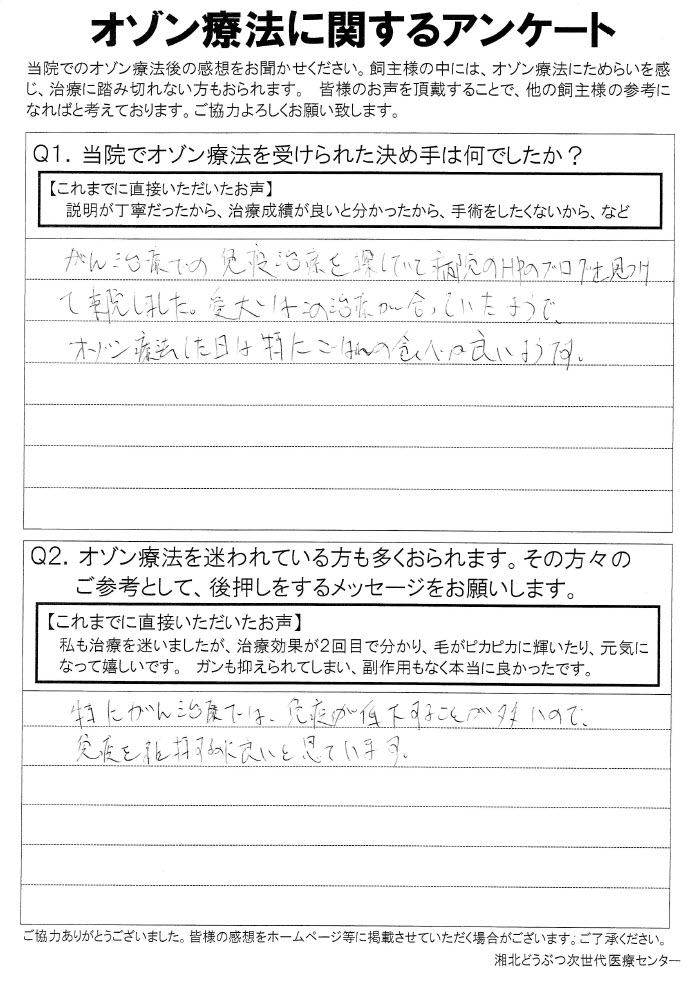 オゾン療法に関するアンケート
当院でのオゾン療法後の感想をお聞かせください。飼主様の中には、オゾン療法にためらいを感
じ、治療に踏み切れない方もおられます。　皆様のお声を頂戴することで、他の飼主様の参考に
なればと考えております。ご協力よろしくお願い致します。
Q1．当院でオゾン療法を受けられた決め手は何でしたか？
【これまでに直接いただいたお声】
説明が丁寧だったから、治療成績が良いと分かったから、手術をしたくないから、など
がん治療での免疫治療を探していて病院のHPのブログを見つけ
て来院しました。愛犬にはこの治療が合っていたようで、
オゾン療法した日は特にごはんの食べは良いようです。
Q2．オゾン療法を迷われている方も多くおられます。その方々の
ご参考として、後押しをするメッセージをお願いします。
【これまでに直接いただいたお声】
私も治療を迷いましたが、治療効果が２回目で分かり、毛がピカピカに輝いたり、元気に
なって嬉しいです。　ガンも抑えられてしまい、副作用もなく本当に良かったです。
特にがん治療では、免疫が低下することが多いので、
免疫を維持するのに良いと思っています。
ご協力ありがとうございました。皆様の感想をホームページ等に掲載させていただく場合がございます。ご了承ください。
湘北どうぶつ次世代医療センター